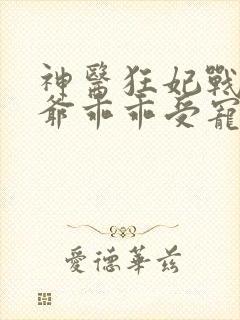 神醫狂妃戰
爺乖乖受寵
愛德華茲